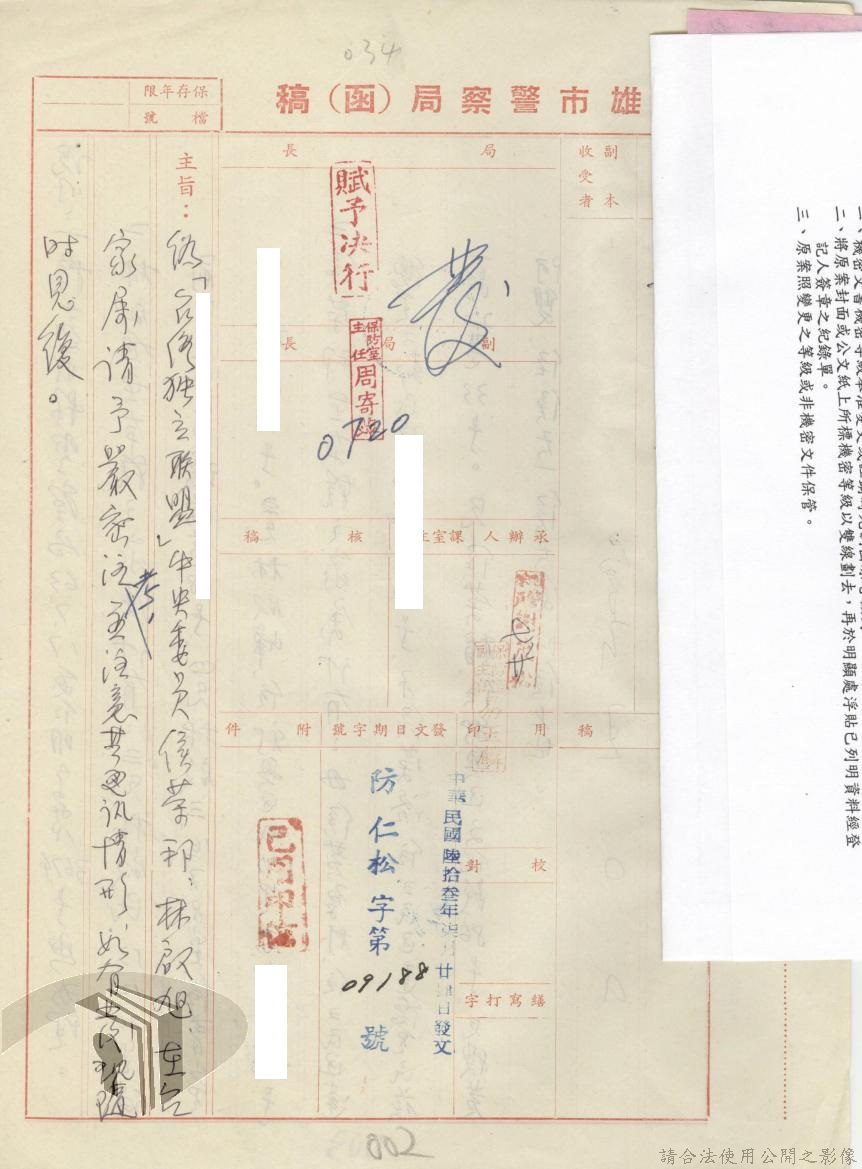 034
雄市警察局(函)稿
保存年限
檔號
副本
收受者
局長
副局長
賦予決行
發
保防室
主任
周寄
0720
承辦人
課室主
核稿
附件
發文日期字號
用印
稿
校對
繕寫打字
中華民國陸拾叁年 月廿 日發文
防仁松字第
09188
號
已用印
主旨：偽「台灣独立联盟」中央委員侯荣邦、林啟旭、在台
家属請予嚴密注考,並注意其通訊情形,如有
时見復。
002
二、將原案封面或公文紙上所標機密等級以雙線劃去，再於明顯處浮貼已列明資料經登
記人簽章之紀錄單。
三、原案照變更之等級或非機密文件保管。
請合法使用公開之影像